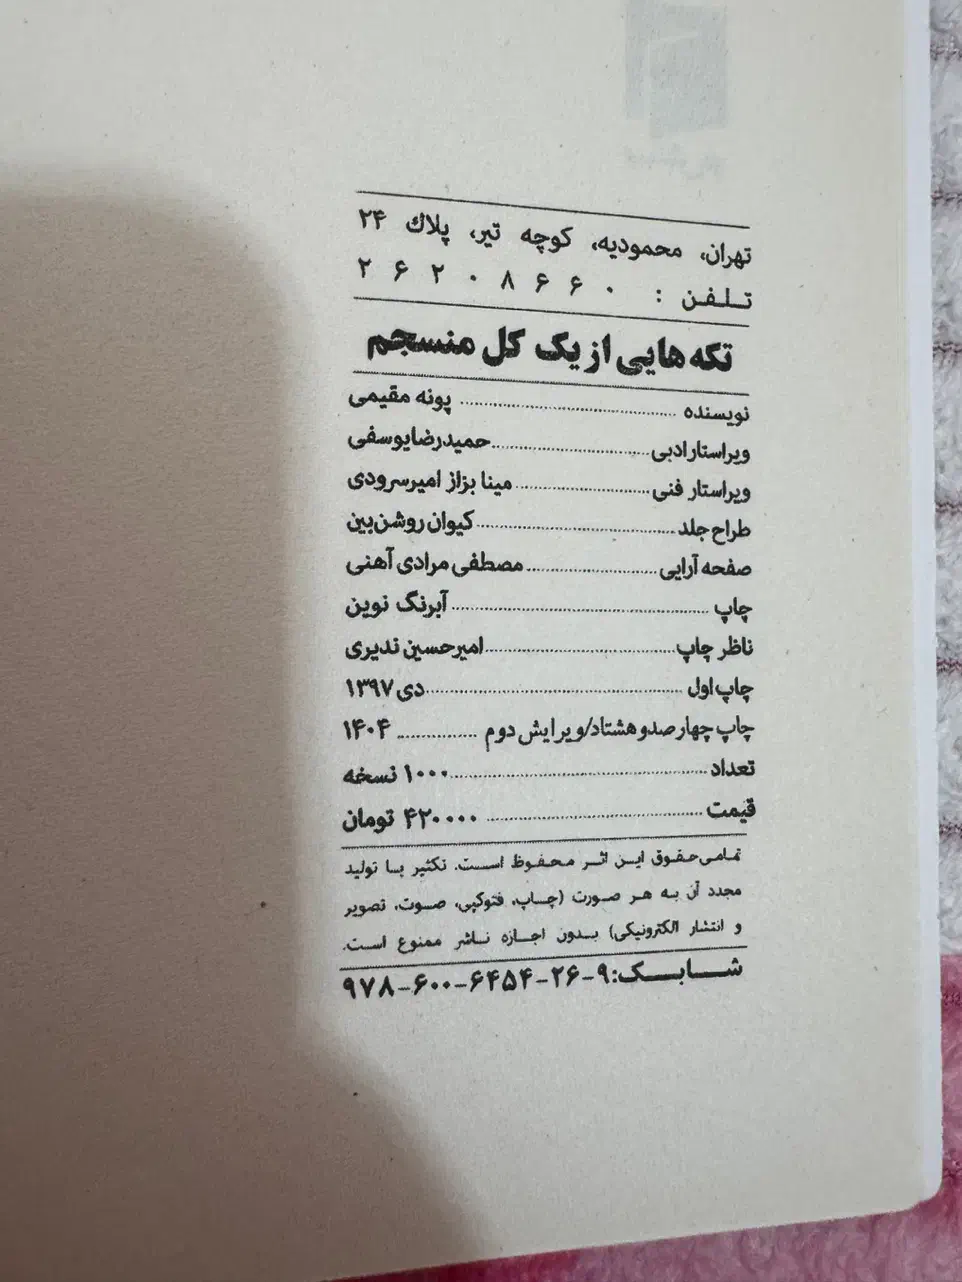 تهران، محمودیه، کوچه تیر، پلاك ۲۴
تلفن : ۲۶۲۰۸۶۶۰
تکه هایی از یک کل منسجم
نویسنده ........ پونه مقیمی
ویراستار ادبی ........ حمیدرضا یوسفی
ویراستار فنی ........ مینا بزاز امیرسرودی
طراح جلد ........ کیوان روشن‌بین
صفحه آرایی ........ مصطفی مرادی آهنی
چاپ ........ آبرنگ نوین
ناظر چاپ ........ امیرحسین ندیری
چاپ اول ........ دی ۱۳۹۷
چاپ چهارصدو هشتاد/ویرایش دوم ........ ۱۴۰۴
تعداد ........ ۱۰۰۰ نسخه
قیمت ........ ۴۲۰۰۰۰ تومان
تمامی حقوق این اثر محفوظ است. تکثیر یا تولید
مجدد آن به هر صورت (چاپ، فتوکپی، صوت، تصویر
و انتشار الکترونیکی) بدون اجازه ناشر ممنوع است.
شابک: ۹-۲۶-۶۴۵۴-۶۰۰-۹۷۸